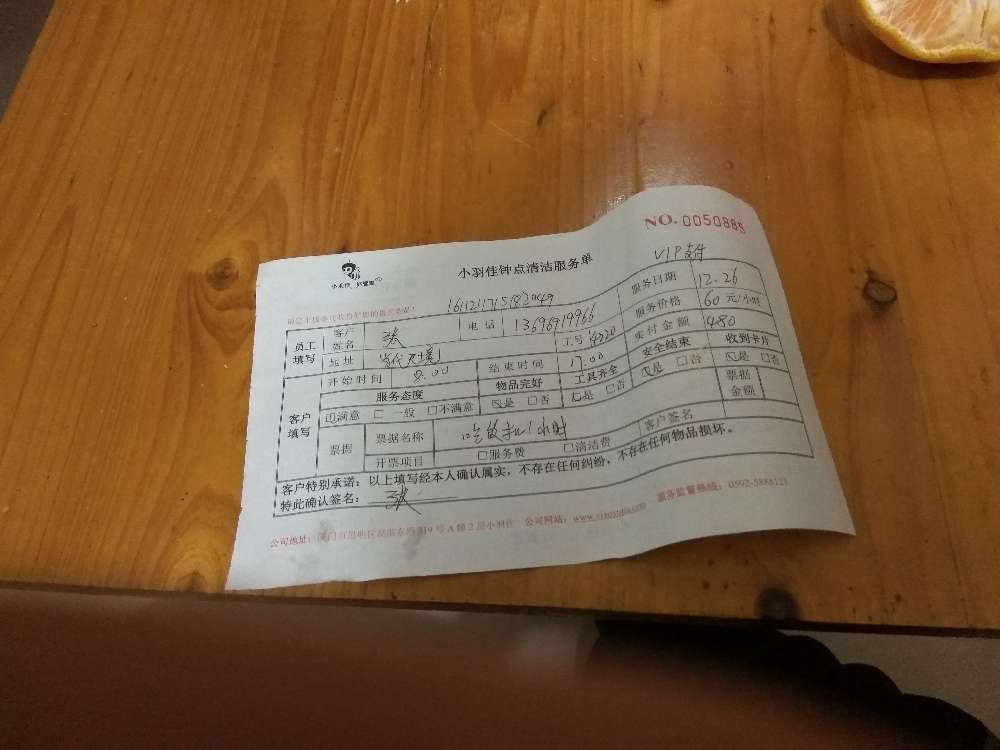 NO. 0050885
VIP
小羽佳钟点清洁服务单
员工填写 客户姓名 张 电话 13696919966 服务日期 12.26
地址 工号 4220 服务价格 60 元/小时
开始时间 8:00 结束时间 17:00 实付金额 480
客户填写 服务态度 物品完好 工具齐全 安全结束 收到卡片
满意 □ 一般 □不满意 是 □否 是 □否 是 □否 是 □否
票据 票据名称 吃饭扣1小时 票据金额
开票项目 □服务费 □清洁费 客户签名
客户特别承诺:以上填写经本人确认属实,不存在任何纠纷,不存在任何物品损坏。
特此确认签名: 张
公司地址: 9号A梯2层小羽佳 公司网站: 服务监督热线: